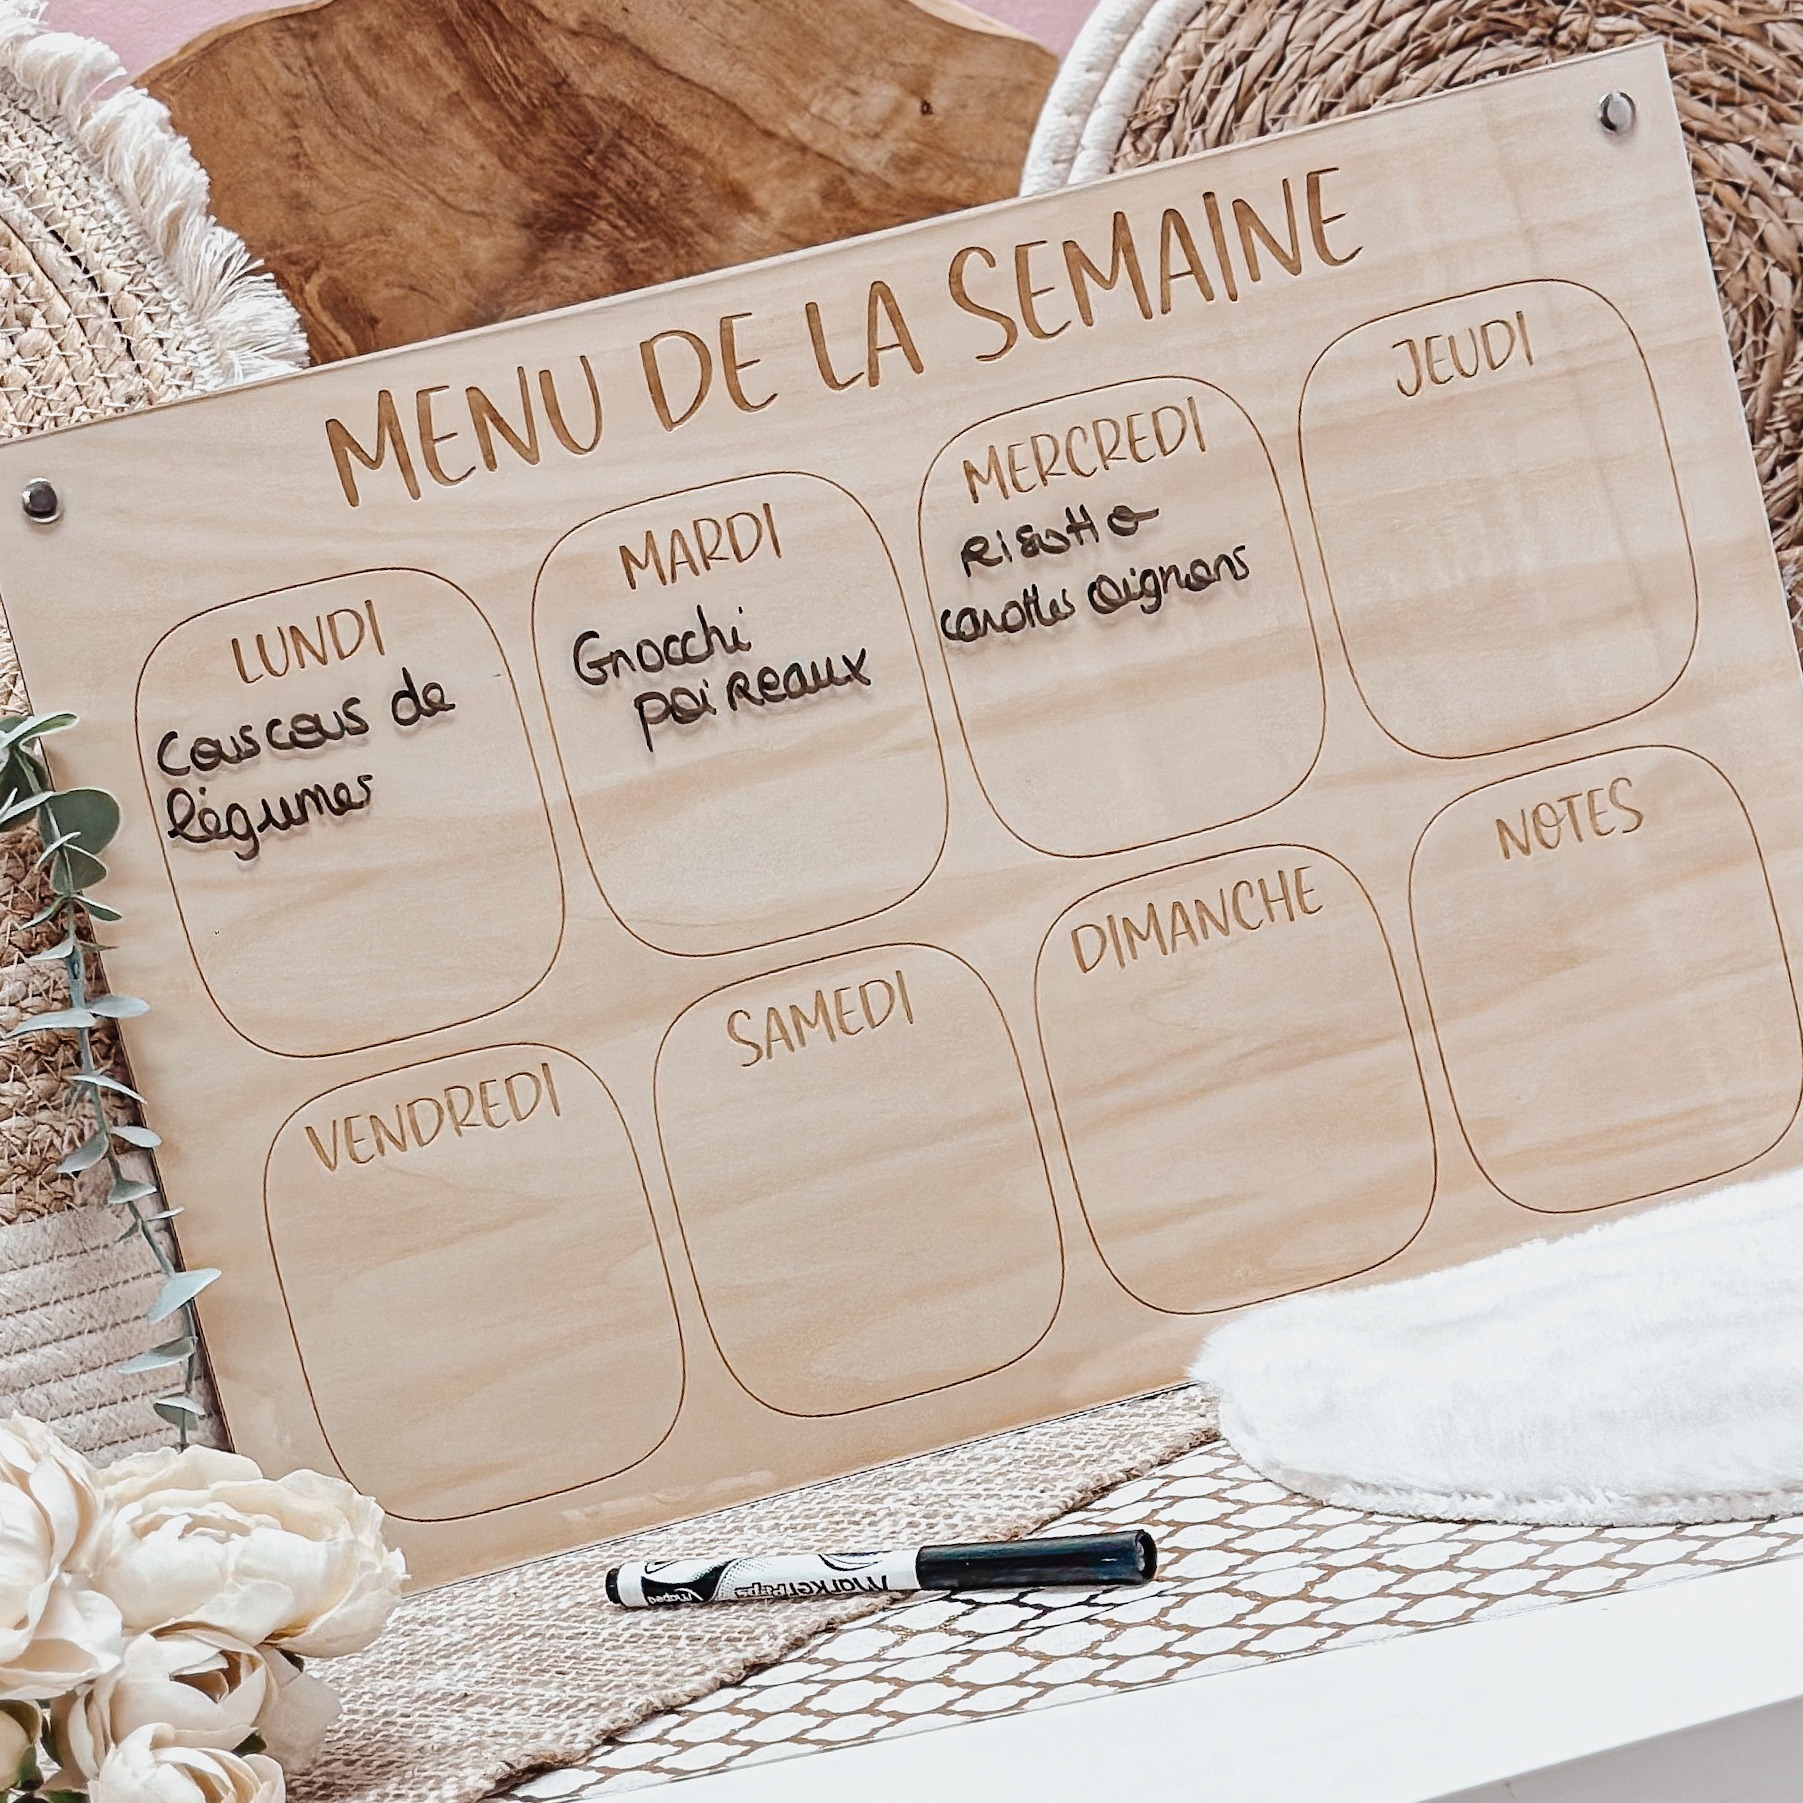 MENU DE LA SEMAINE
LUNDI
Couscous de
légumes
MARDI
Gnocchi
poireaux
MERCREDI
Risotto
carottes oignons
JEUDI
VENDREDI
SAMEDI
DIMANCHE
NOTES
Marker'Peps
Maped